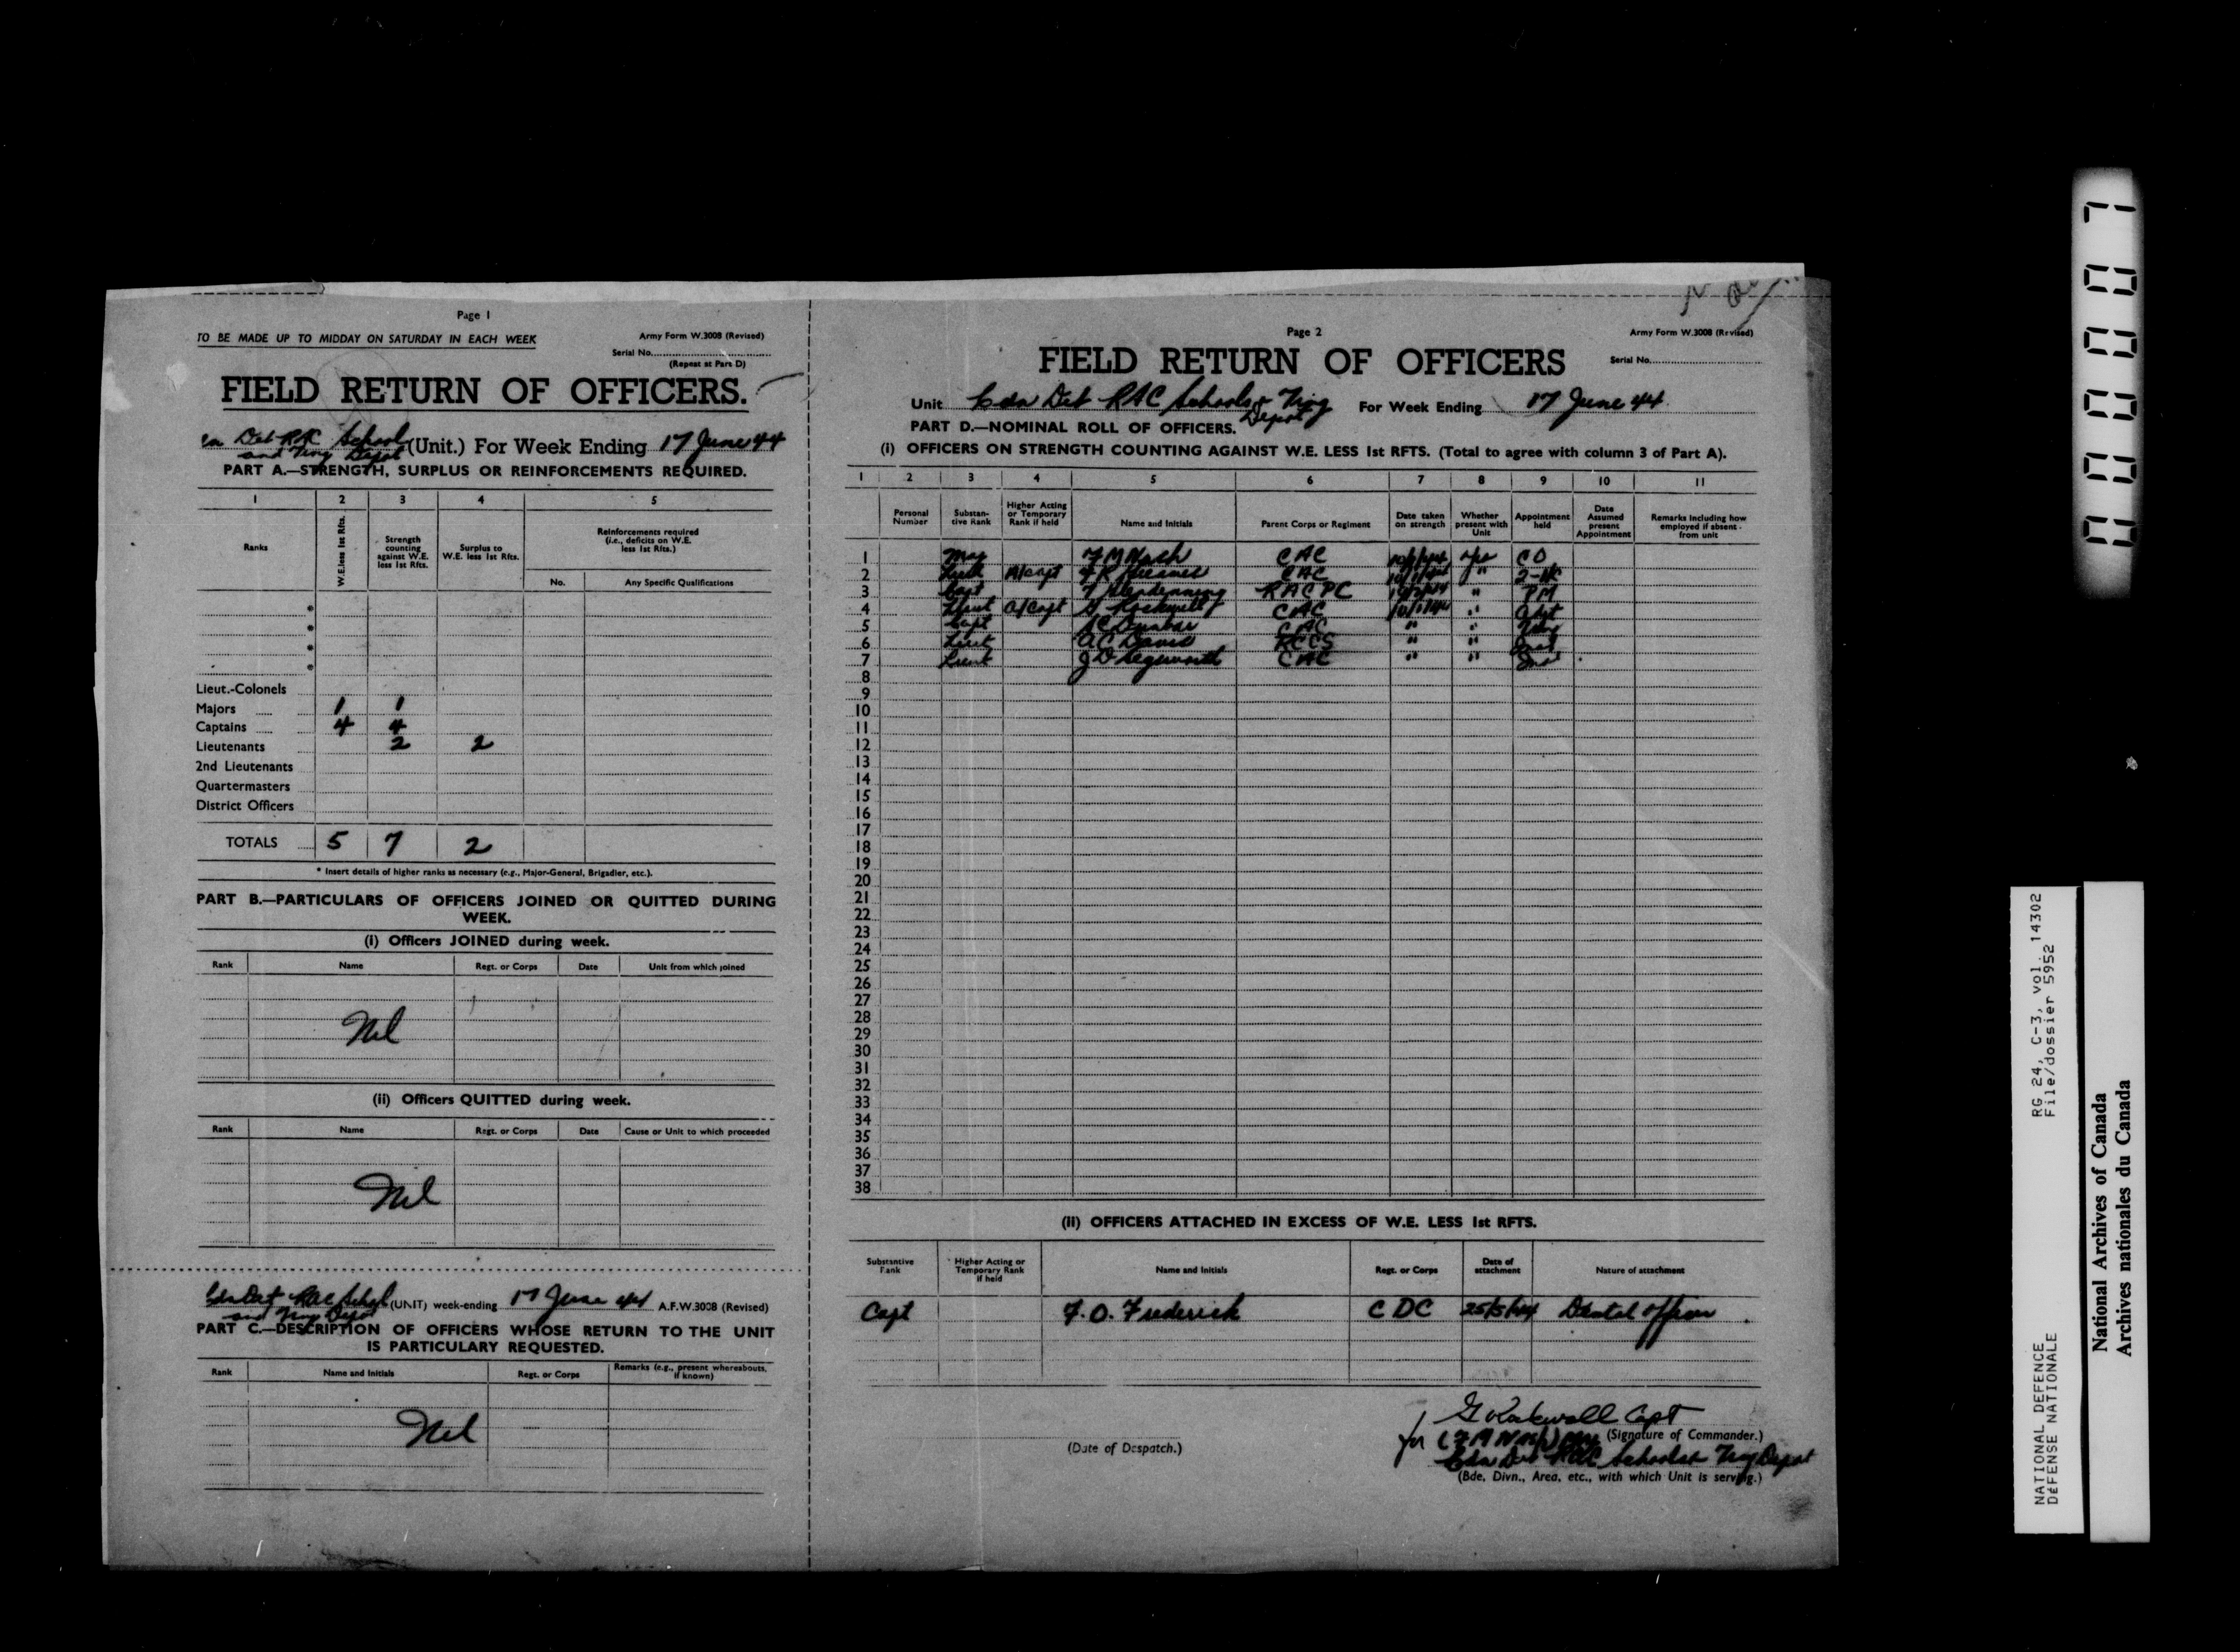 Page 1
TO BE MADE UP TO MIDDAY ON SATURDAY IN EACH WEEK
Army Form W.3008 (Revised)
Serial No.
(Repeat at Part D)
FIELD RETURN OF OFFICERS.
Det RAC School (Unit.) For Week Ending 17 June 44
and Trng Depot
PART A.—STRENGTH, SURPLUS OR REINFORCEMENTS REQUIRED.
1 2 3 4 5
Ranks
W.E. less 1st Rfts.
Strength counting against W.E. less 1st Rfts.
Surplus to W.E. less 1st Rfts.
Reinforcements required (i.e., deficits on W.E. less 1st Rfts.)
No. Any Specific Qualifications
*
*
*
*
Lieut.-Colonels
Majors 1 1
Captains 4 4
Lieutenants 2 2
2nd Lieutenants
Quartermasters
District Officers
TOTALS 5 7 2
* Insert details of higher ranks as necessary (e.g., Major-General, Brigadier, etc.).
PART B.—PARTICULARS OF OFFICERS JOINED OR QUITTED DURING
WEEK.
(i) Officers JOINED during week.
Rank Name Regt. or Corps Date Unit from which joined
Nil
(ii) Officers QUITTED during week.
Rank Name Regt. or Corps Date Cause or Unit to which proceeded
Nil
Cdn Det RAC School (UNIT) week-ending 17 June 44 A.F.W.3008 (Revised)
and Trng Depot
PART C.—DESCRIPTION OF OFFICERS WHOSE RETURN TO THE UNIT
IS PARTICULARY REQUESTED.
Rank Name and Initials Regt. or Corps Remarks (e.g., present whereabouts, if known)
Nil
Page 2
Army Form W.3008 (Revised)
Serial No.
FIELD RETURN OF OFFICERS
Unit Cdn Det RAC Schools & Trng Depot For Week Ending 17 June 44
PART D.—NOMINAL ROLL OF OFFICERS.
(i) OFFICERS ON STRENGTH COUNTING AGAINST W.E. LESS 1st RFTS. (Total to agree with column 3 of Part A).
1 2 3 4 5 6 7 8 9 10 11
Personal Number
Substantive Rank
Higher Acting or Temporary Rank if held
Name and Initials
Parent Corps or Regiment
Date taken on strength
Whether present with Unit
Appointment held
Date Assumed present Appointment
Remarks including how employed if absent from unit
1 Maj F M Nash CAC yes CO
2 Lieut A/Capt CAC " 2-I/C
3 Capt " PM
4 Lieut A/Capt G Rockwell CAC 10/1/44 " Adjt
5 Capt CAC " "
6 Lieut RCCS " "
7 Lieut CAC " "
8
9
10
11
12
13
14
15
16
17
18
19
20
21
22
23
24
25
26
27
28
29
30
31
32
33
34
35
36
37
38
(II) OFFICERS ATTACHED IN EXCESS OF W.E. LESS 1st RFTS.
Substantive Rank
Higher Acting or Temporary Rank if held
Name and Initials
Regt. or Corps
Date of attachment
Nature of attachment
Capt F. O. Frederick CDC 25/5/44 Dental officer
G Rockwell Capt
for (F M Nash) Maj (Signature of Commander.)
(Date of Despatch.)
Cdn Det RAC Schools & Trng Depot
(Bde, Divn., Area, etc., with which Unit is serving.)
RG 24, C-3, vol. 14302
File/dossier 5952
NATIONAL DEFENCE
DÉFENSE NATIONALE
National Archives of Canada
Archives nationales du Canada